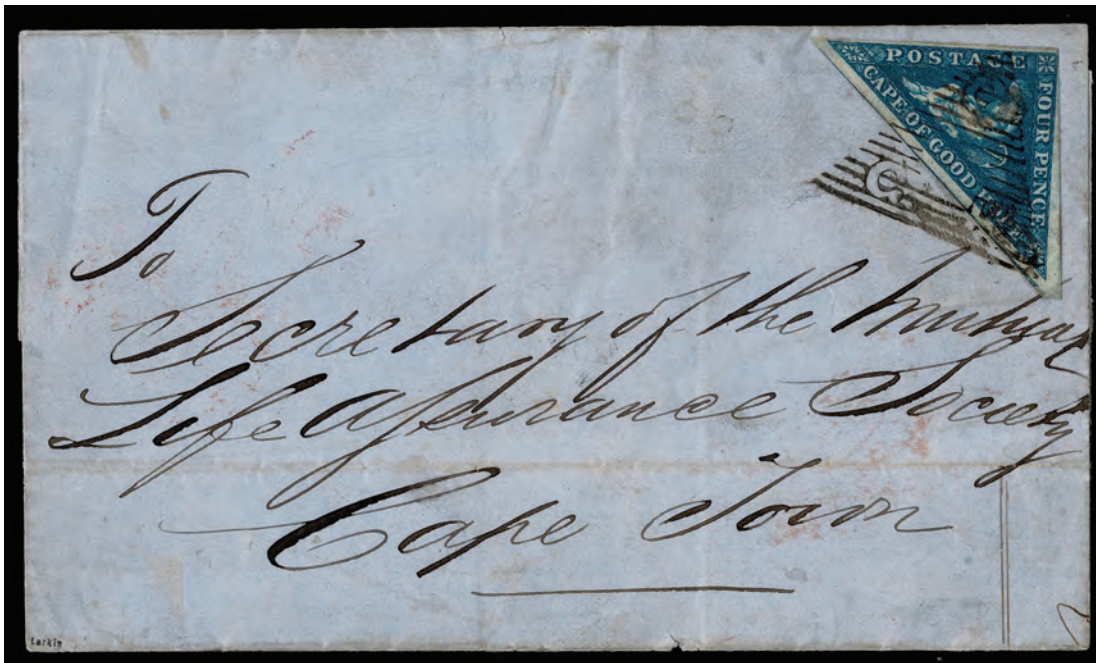 POSTAGE
FOUR PENCE
CAPE OF GOOD HOPE
To
Secretary of the Mutual
Life Assurance Society
Cape Town
Larkin